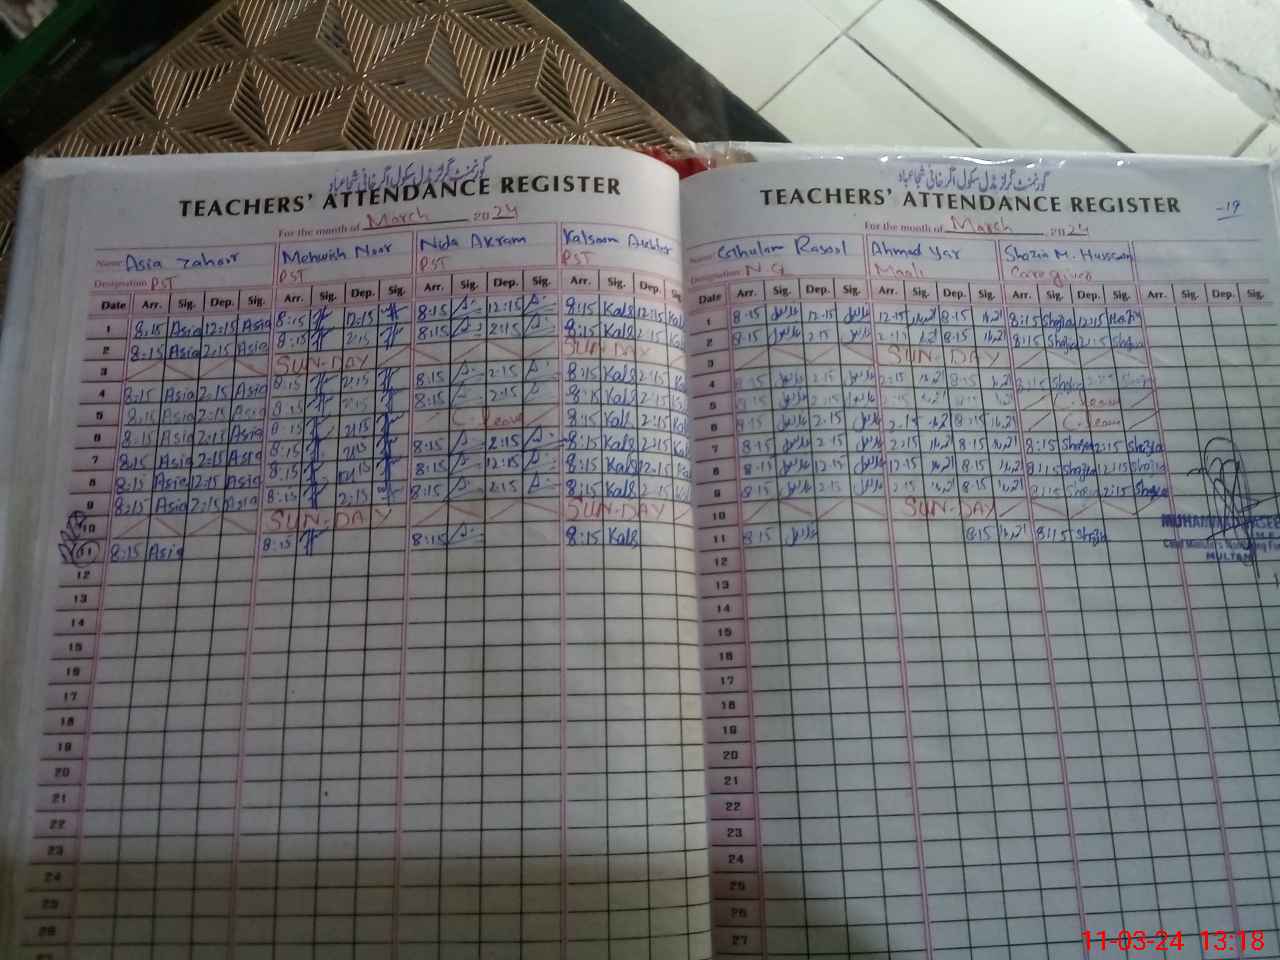 گورنمنٹ گرلز مڈل سکول
TEACHERS' ATTENDANCE REGISTER
For the month of March 2024
Name Asia Zahoor Mehwish Noor Nida Akram Kalsoom Akhter
Designation PST PST PST PST
Date Arr. Sig. Dep. Sig. Arr. Sig. Dep. Sig. Arr. Sig. Dep. Sig. Arr. Sig. Dep. Sig.
1 8:15 Asia 12:15 Asia 8:15 12:15 8:15 12:15 8:15 Kals 12:15
2 8:15 Asia 2:15 Asia 8:15 2:15 8:15 2:15 8:15 Kals 2:15
3 SUN-DAY SUN-DAY
4 8:15 Asia 2:15 Asia 8:15 2:15 8:15 2:15 8:15 Kals 2:15
5 8:15 Asia 2:15 Asia 8:15 2:15 8:15 2:15 8:15 Kals 2:15
6 8:15 Asia 2:15 Asia 8:15 2:15 C. leave 8:15 Kals 2:15
7 8:15 Asia 2:15 Asia 8:15 2:15 8:15 2:15 8:15 Kals 2:15
8 8:15 Asia 12:15 Asia 8:15 12:15 8:15 12:15 8:15 Kals 12:15
9 8:15 Asia 2:15 Asia 8:15 2:15 8:15 2:15 8:15 Kals 2:15
10 SUN-DAY SUN-DAY
11 8:15 Asia 8:15 8:15 8:15 Kals
12
13
14
15
16
17
18
19
20
21
22
23
24
25
26
گورنمنٹ گرلز مڈل سکول
TEACHERS' ATTENDANCE REGISTER
-19
For the month of March 2024
Name Ghulam Rasool Ahmad Yar Shazia M. Hussain
Designation N.Q Maali Caregiver
Date Arr. Sig. Dep. Sig. Arr. Sig. Dep. Sig. Arr. Sig. Dep. Sig. Arr. Sig. Dep. Sig.
1 8:15 12:15 12:15 8:15 8:15 Shazia 12:15
2 8:15 2:15 2:15 8:15 8:15 Shazia 2:15 Shazia
3 SUN-DAY
4 8:15 2:15 2:15 8:15 8:15 Shazia 2:15 Shazia
5 8:15 2:15 2:15 8:15 C. leave
6 8:15 2:15 2:15 8:15 C. leave
7 8:15 2:15 2:15 8:15 8:15 Shazia 2:15 Shazia
8 8:15 12:15 12:15 8:15 8:15 Shazia 12:15 Shazia
9 8:15 2:15 2:15 8:15 8:15 Shazia 2:15 Shazia
10 SUN-DAY
11 8:15 8:15 8:15 Shazia
12
13
14
15
16
17
18
19
20
21
22
23
24
25
26
27
MULTAN
11-03-24 13:18